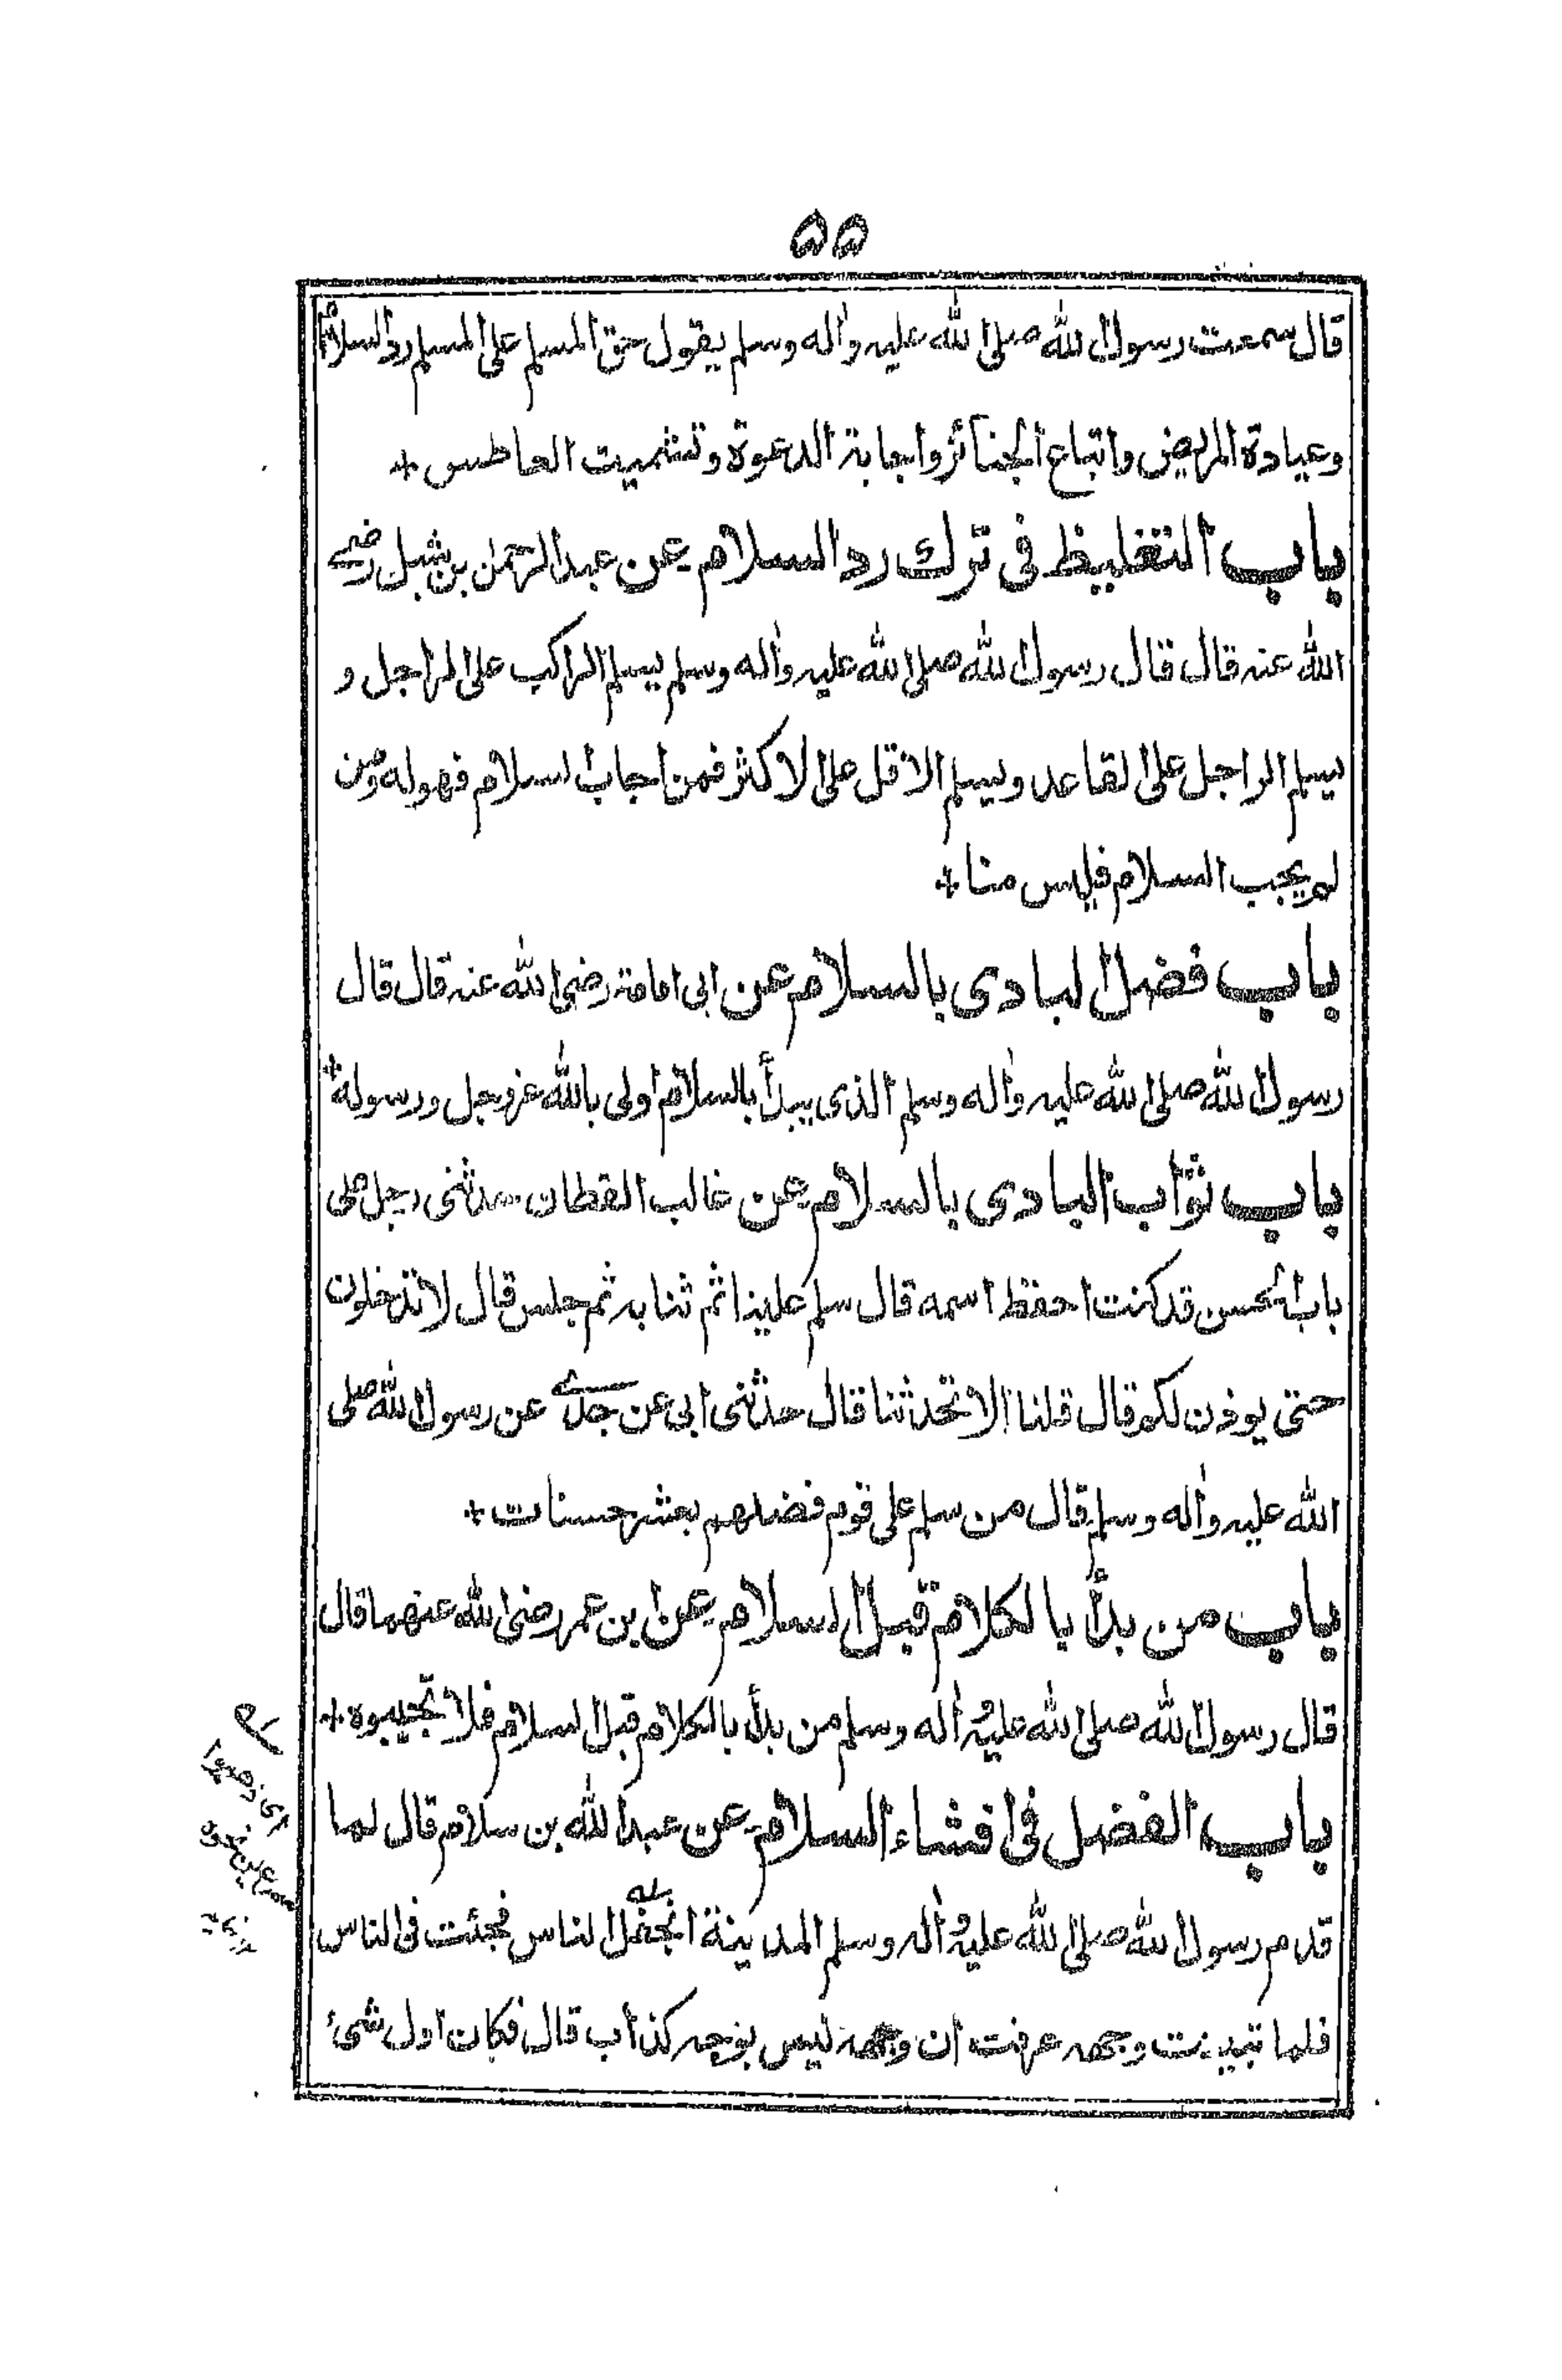 ۵۵
قال سمعت رسول الله صلى الله عليه واله وسلم يقول حق المسلم على المسلم رد السلام
وعيادة المريض واتباع الجنائز واجابة الدعوة وتشميت العاطس +
باب التغليظ فى ترك رد السلام عن عبد الرحمن بن شبل رضى
الله عنه قال قال رسول الله صلى الله عليه واله وسلم يسلم الراكب على الراجل و
يسلم الراجل على القاعد ويسلم الاقل على الاكثر فمن اجاب السلام فهو له ومن
لم يجب السلام فليس منا +
باب فضل البادى بالسلام عن ابى امامة رضى الله عنه قال قال
رسول الله صلى الله عليه واله وسلم الذى يبدأ بالسلام اولى بالله عز وجل ورسوله +
باب ثواب البادى بالسلام عن غالب القطان حدثنى رجل على
باب الحسن قد كنت احفظ اسمه قال سلم علينا ثم ثنا به ثم جلس قال لا تدخلون
حتى يوذن لكم قال قلنا الا تحدثنا قال حدثنى ابى عن جدى عن رسول الله صلى
الله عليه واله وسلم قال من سلم على قوم فضلهم بعشر حسنات +
باب من بدأ بالكلام قبل السلام عن ابن عمر رضى الله عنهما قال
قال رسول الله صلى الله عليه واله وسلم من بدأ بالكلام قبل السلام فلا تجيبوه +
باب الفضل فى افشاء السلام عن عبد الله بن سلام قال لما
قدم رسول الله صلى الله عليه واله وسلم المدينة انجفل الناس فجئت فى الناس
فلما تبينت وجهه عرفت ان وجهه ليس بوجه كذاب قال فكان اول شئ
اى ذهبوا
مسرعين نحوه